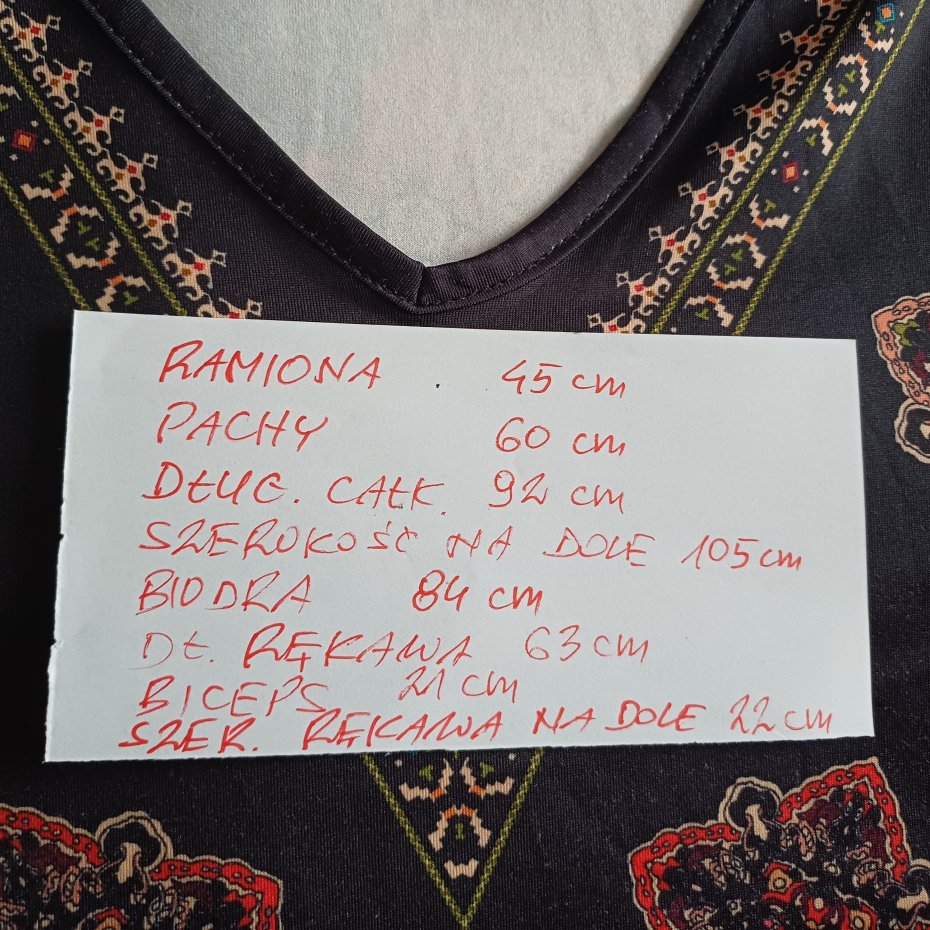 RAMIONA 45 cm
PACHY 60 cm
DŁUG. CAŁK. 92 cm
SZEROKOŚĆ NA DOLE 105 cm
BIODRA 84 cm
DŁ. RĘKAWA 63 cm
BICEPS 21 cm
SZER. RĘKAWA NA DOLE 22 cm